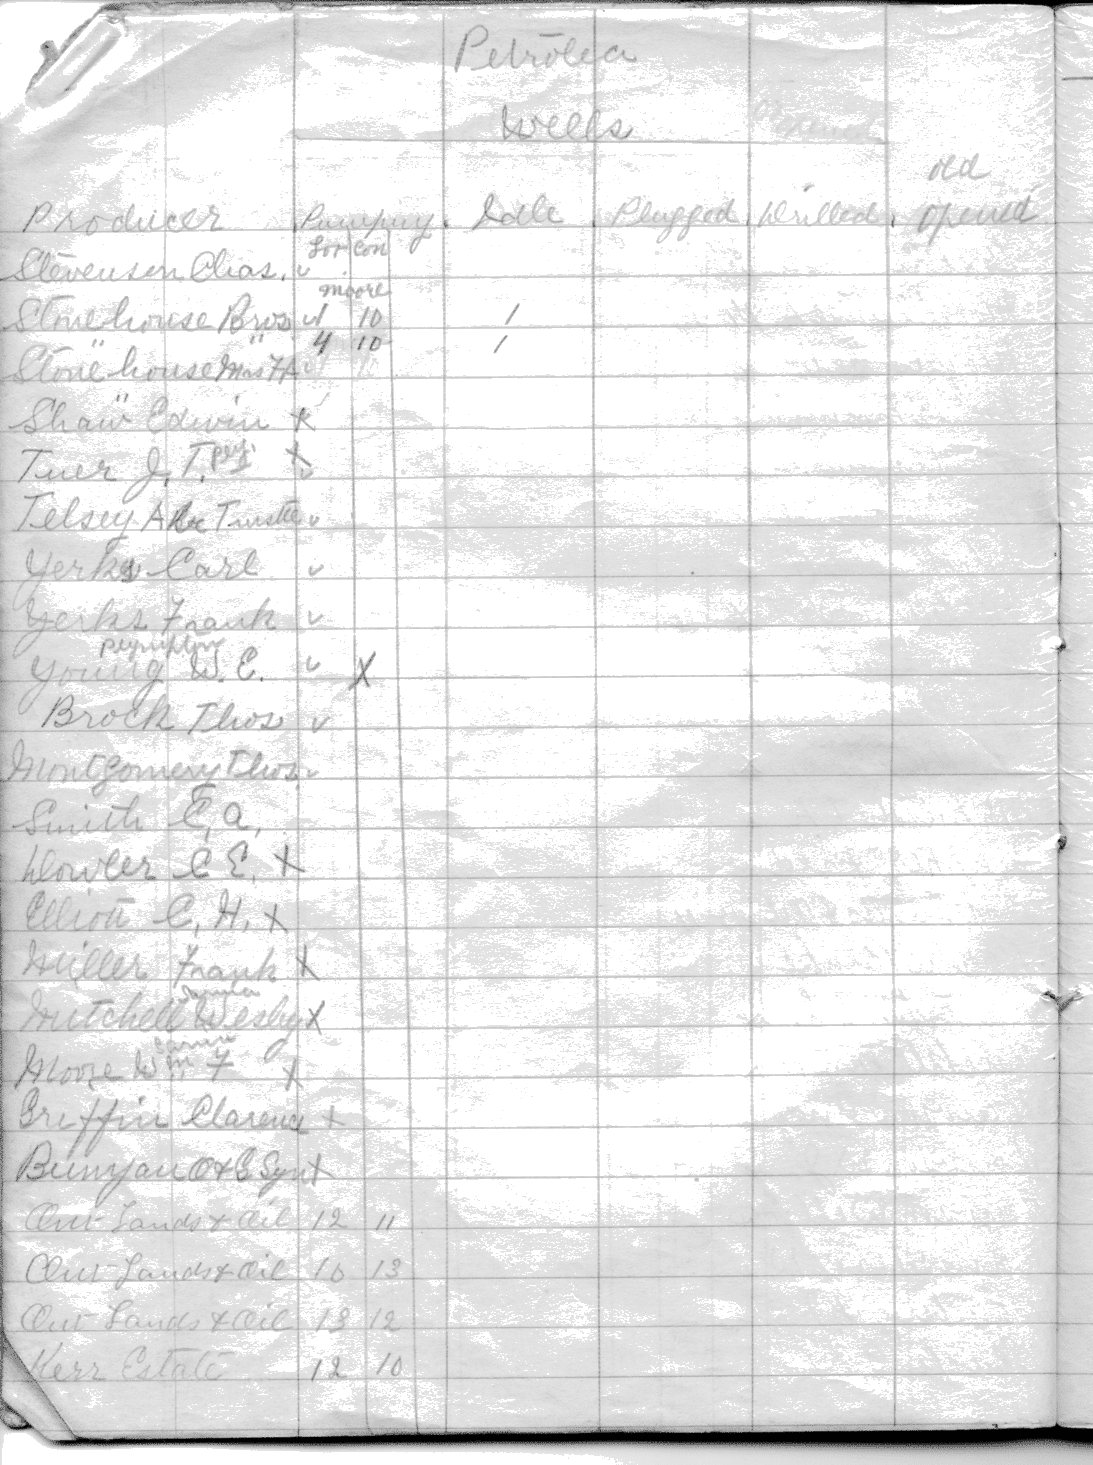 Petrolea
Wells
old
Producer Pumping Idle Plugged Drilled opened
Lot Con
Stevenson Chas. v
Moore
Stonehouse Bros v1 10 1
" " 4 10 1
Stonehouse Mrs F A v
"
Shaw Edwin x
Tuer J. T. x
Telsey Alex Trustee v
Yerks Carl v
Yerks Frank v
Young W. E. v X
Brock Thos v
Montgomery Thos. v
Smith E. A.
Dowler C E. x
Elliott C. H. x
Miller Frank x
Mitchell Wesley x
Moore Wm F x
Griffin Clarence x
Bunyan O & G Syn x
Ont Lands & Oil 12 11
Ont Lands & Oil 10 13
Ont Lands & Oil 13 12
Kerr Estate 12 10